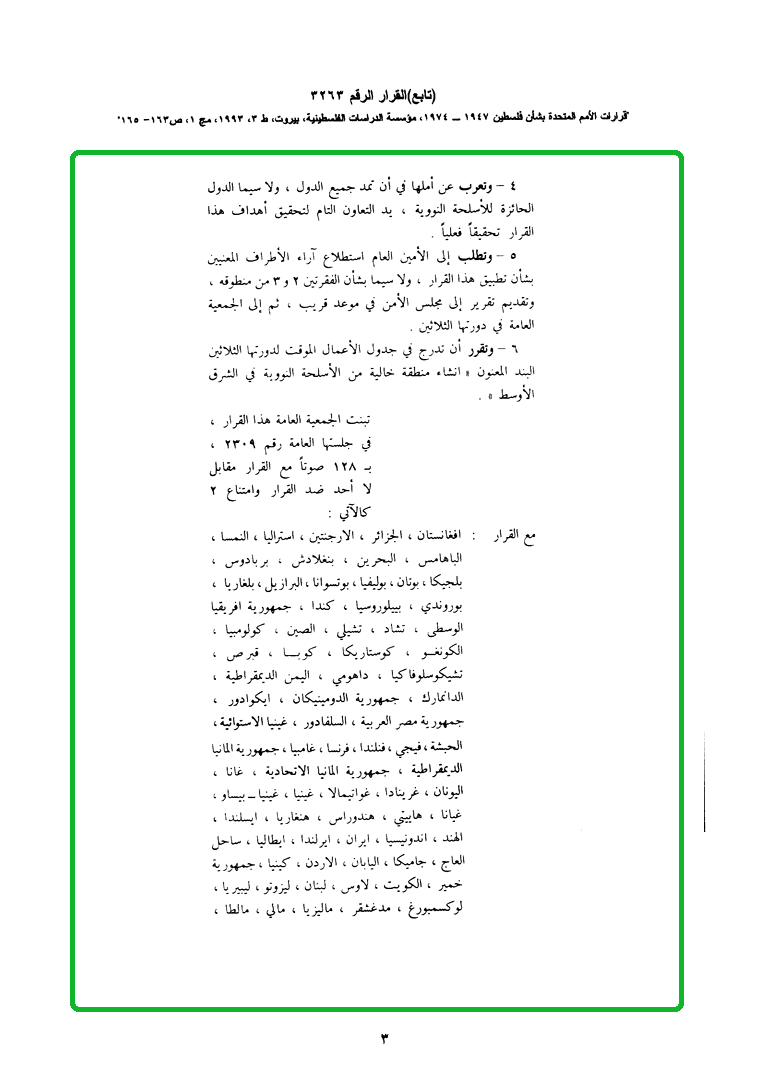 (تابع)القرار الرقم ٣٢٦٣
"قرارات الأمم المتحدة بشأن فلسطين ١٩٤٧ ــ ١٩٧٤، مؤسسة الدراسات الفلسطينية، بيروت، ط ٣، ١٩٩٣، مج ١، ص١٦٣- ١٦٥"
٤ – وتعرب عن أملها في أن تمد جميع الدول ، ولا سيما الدول
الحائزة للأسلحة النووية ، يد التعاون التام لتحقيق أهداف هذا
القرار تحقيقاً فعلياً .
٥ – وتطلب إلى الأمين العام استطلاع آراء الأطراف المعنيين
بشأن تطبيق هذا القرار ، ولا سيما بشأن الفقرتين ٢ و ٣ من منطوقه ،
وتقديم تقرير إلى مجلس الأمن في موعد قريب ، ثم إلى الجمعية
العامة في دورتها الثلاثين .
٦ – وتقرر أن تدرج في جدول الأعمال الموقت لدورتها الثلاثين
البند المعنون « انشاء منطقة خالية من الأسلحة النووية في الشرق
الأوسط » .
تبنت الجمعية العامة هذا القرار ،
في جلستها العامة رقم ٢٣٠٩ ،
بـ ١٢٨ صوتاً مع القرار مقابل
لا أحد ضد القرار وامتناع ٢
كالآتي :
مع القرار : افغانستان ، الجزائر ، الارجنتين ، استراليا ، النمسا ،
الباهامس ، البحرين ، بنغلادش ، بربادوس ،
بلجيكا ، بوتان ، بوليفيا ، بوتسوانا ، البرازيل ، بلغاريا ،
بوروندي ، بييلوروسيا ، كندا ، جمهورية افريقيا
الوسطى ، تشاد ، تشيلي ، الصين ، كولومبيا ،
الكونغــو ، كوستاريكا ، كوبــا ، قبرص ،
تشيكوسلوفاكيا ، داهومي ، اليمن الديمقراطية ،
الدانمارك ، جمهورية الدومينيكان ، ايكوادور ،
جمهورية مصر العربية ، السلفادور ، غينيا الاستوائية ،
الحبشة ، فيجي ، فنلندا ، فرنسا ، غامبيا ، جمهورية المانيا
الديمقراطية ، جمهورية المانيا الاتحادية ، غانا ،
اليونان ، غرينادا ، غواتيمالا ، غينيا ، غينيا ــ بيساو ،
غيانا ، هاييتي ، هندوراس ، هنغاريا ، ايسلندا ،
الهند ، اندونيسيا ، ايران ، ايرلندا ، ايطاليا ، ساحل
العاج ، جاميكا ، اليابان ، الاردن ، كينيا ، جمهورية
خمير ، الكويت ، لاوس ، لبنان ، ليزوتو ، ليبيريا ،
لوكسمبورغ ، مدغشقر ، ماليزيا ، مالي ، مالطا ،
٣